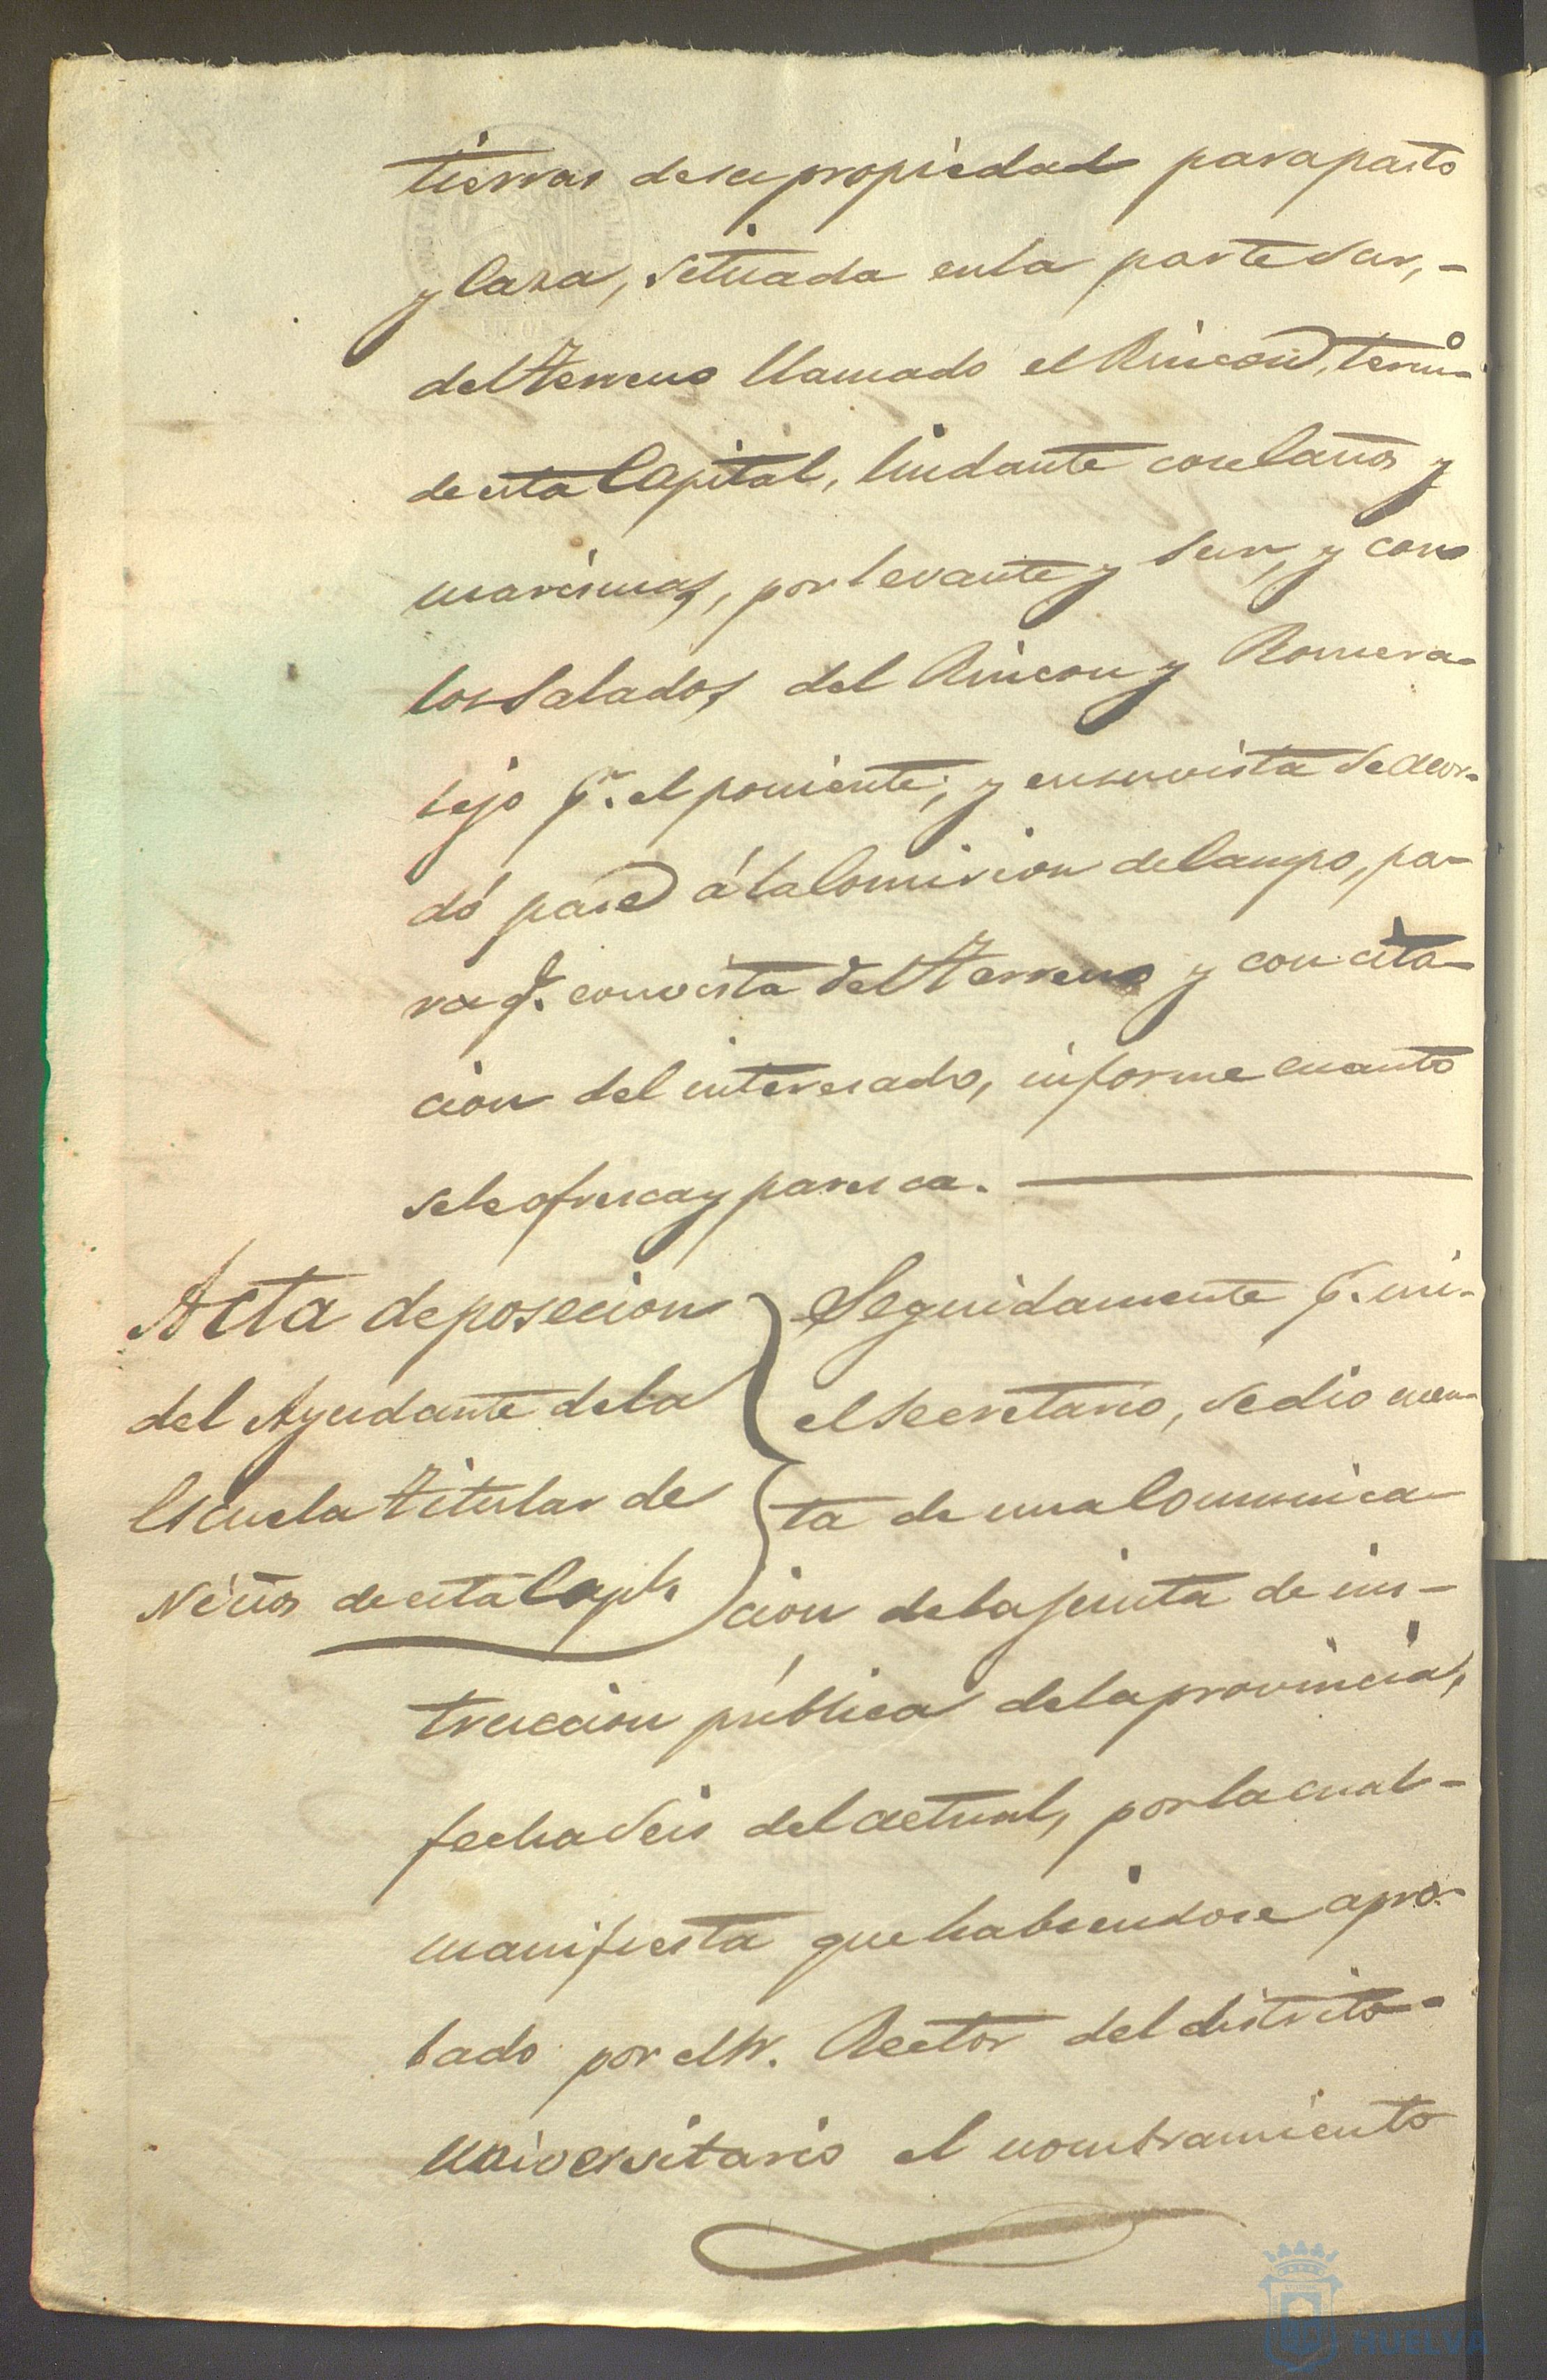 tierras de su propiedad para pasto
y Casa, situada en la parte Sur,-
del Terreno llamado el Rincon, term.o
de esta Capital, lindante con Caños y
marismas, por levante y Sur, y con
los Salados, del Rincon y Romera-
lejo p.r el poniente; y en su vista se acor-
dó pase á la Comision de Campo, pa-
ra q.e con vista del Terreno y con cita-
cion del interesado, informe cuanto
se le ofresca y paresca.
Acta de posecion
del Ayudante de la
Escuela titular de
Niños de esta Capl.
Seguidamente p.r mi-
el secretario, se dio cuen-
ta de una Comunica-
cion de la junta de ins-
truccion pública de la provincia,
fecha Seis del actual, por la cual-
manifiesta que habiendose apro-
bado por el Sr. Rector del distrito-
universitario el nombramiento
HUELVA